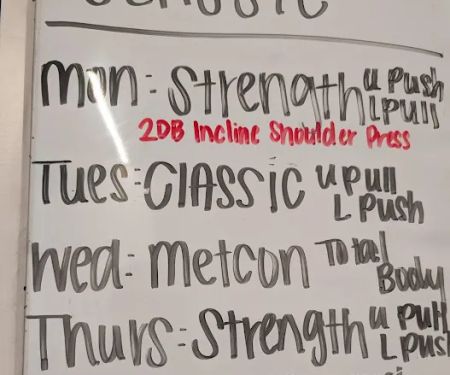 CLASSIC
Mon: Strength U Push
L Pull
2DB Incline Shoulder Press
Tues: Classic U Pull
L Push
Wed: Metcon Total
Body
Thurs: Strength U Pull
L Push